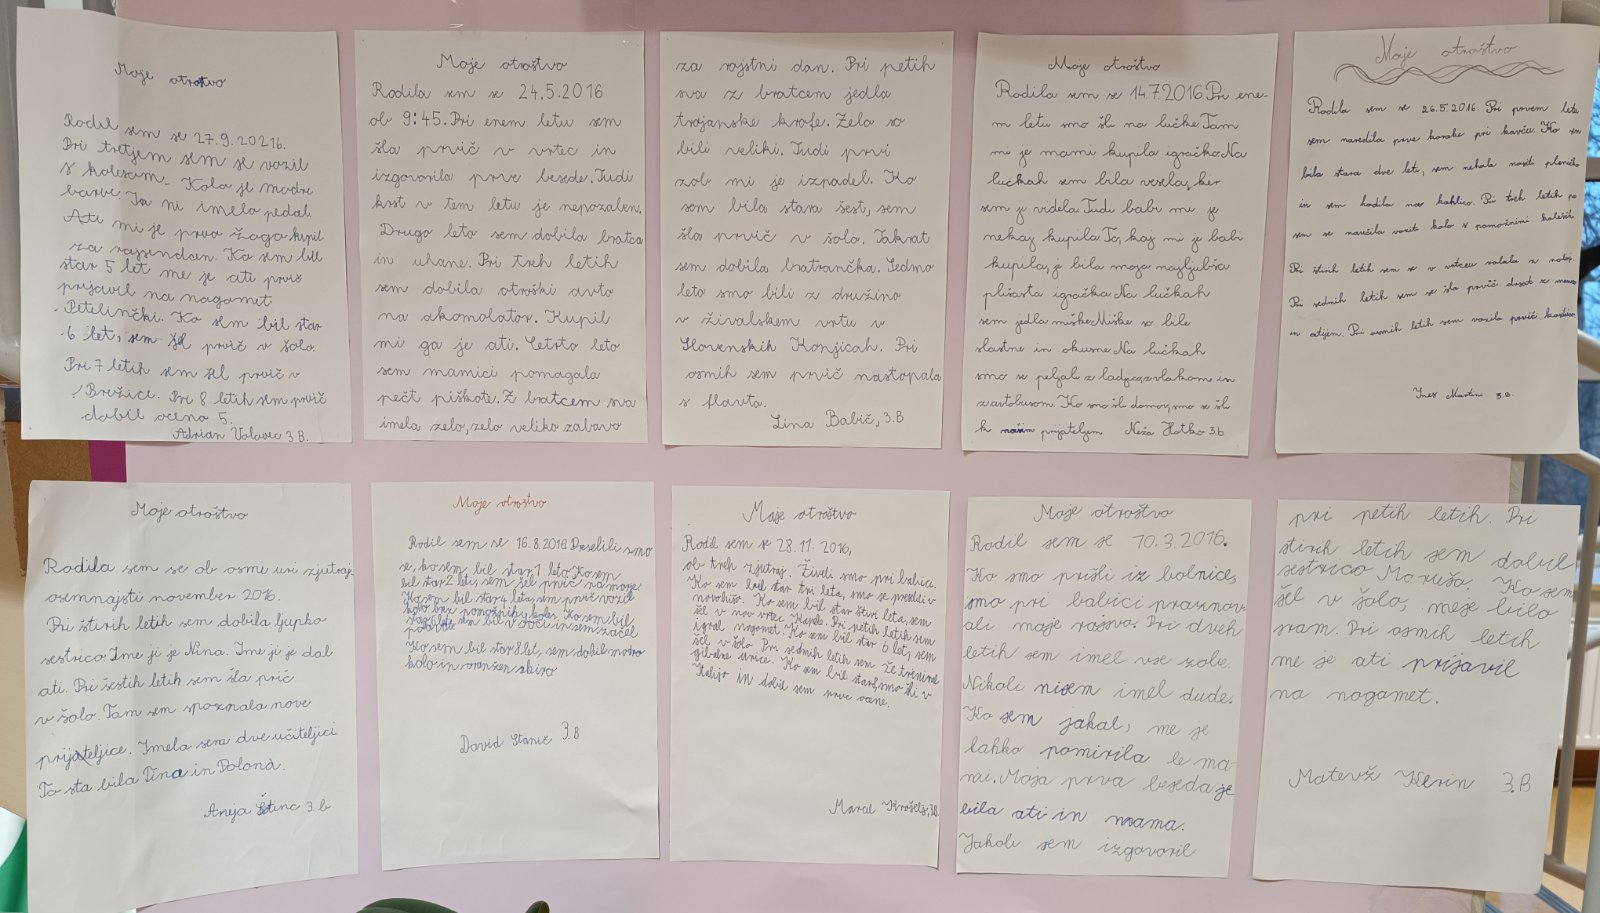 Moje otroštvo
Rodil sem se 27.9.20216.
Pri tretjem sem se vozil
s kolesom. Kolo je modre
barve. Ta ni imelo pedal.
Ati mi je prvo žogo kupil
za rojsendan. Ko sem bil
star 5 let me je ati prvič
prijavil na nogomet
Petelinčki. Ko sem bil star
6 let, sem šel prvič v šolo.
Pri 7 letih sem šel prvič v
Brežice. Pri 8 letih sem prvič
dobil oceno 5.
Adrian Volovec 3.B.
Moje otroštvo
Rodila sem se 24.5.2016
ob 9:45. Pri enem letu sem
šla prvič v vrtec in
izgovorila prve besede. Tudi
krst v tem letu je nepozaben.
Drugo leto sem dobila bratca
in uhane. Pri treh letih
sem dobila otroški avto
na akomolator. Kupil
mi ga je ati. Četrto leto
sem mamici pomagala
pečt piškote. Z bratcem sva
imela zelo, zelo veliko zabavo
za rojstni dan. Pri petih
sva z bratcem jedla
trojanske krofe. Zelo so
bili veliki. Tudi prvi
zob mi je izpadel. Ko
sem bila stara šest, sem
šla prvič v šolo. Takrat
sem dobila bratrančka. Sedmo
leto smo bili z družino
v živalskem vrtu v
Slovenskih Konjicah. Pri
osmih sem prvič nastopala
s flavto.
Lina Babič, 3.B
Moje otroštvo
Rodila sem se 14.7.2016. Pri ene-
m letu smo šli na lučke. Tam
mi je mami kupila igračko. Na
lučkah sem bila vesela, ker
sem je videla. Tudi babi mi je
nekaj kupila. To, kaj mi je babi
kupila, je bila moja najljubša
plišasta igračka. Na lučkah
sem jedla miške. Miške so bile
slastne in okusne. Na lučkah
smo se peljali z ladjico, z vlakom in
z avtobusom. Ko smo šli domov, smo se šli
k našim prijateljem Neža Hotko 3.b
Moje otroštvo
Rodila sem se 26.5.2016. Pri prvem letu
sem naredila prve korake pri kavču. Ko sem
bila stara dve leti, sem nehala nositi pleničko
in sem hodila na kahlico. Pri treh letih pa
sem se naučila voziti kolo s pomožnimi kolešči
Pri štirih letih sem se v vrtcu
Pri sedmih letih sem se šla prvič
in atijem. Pri osmih letih sem vozila prvič
Ines Martini 3.B.
Moje otroštvo
Rodila sem se ob osmi uri zjutraj
osemnajsti november 2016.
Pri štirih letih sem dobila ljupko
sestrico. Ime ji je Nina. Ime ji je dal
ati. Pri šestih letih sem šla prič
v šolo. Tam sem spoznala nove
prijateljice. Imela sem dve učiteljici
To sta bila Tina in Polona.
Aneja 3.b
Moje otroštvo
Rodil sem se 16.8.2016. Preselili smo
se, ko sem bil star 1 leto. Ko sem
bil star 2 leti, sem šel prvič na morje.
Ko sem bil star 4 leta, sem prvič vozil
kolo brez pomožnih koles. Ko sem bil
star 6 let, sem bil v Soči in sem začel
Ko sem bil star 8 let, sem dobil modro
kolo in oranžen skiro
David Stanič 3.B
Moje otroštvo
Rodil sem se 28.11.2016,
ob treh zjutraj. Živeli smo pri babici.
Ko sem bil star tri leta, smo se preselili v
novo hišo. Ko sem bil star štiri leta, sem
šel v nov vrtec. Pri petih letih sem
igral nogomet. Ko sem bil star 6 let, sem
šel v šolo. Pri sedmih letih sem že treniral
gibalne urice. Ko sem bil star 8, smo šli v
Italijo in dobil sem prve ocene.
Marcel 3.B
Moje otroštvo
Rodil sem se 10.3.2016.
Ko smo prišli iz bolnice,
smo pri babici praznov-
ali moje rojsvo. Pri dveh
letih sem imel vse zobe.
Nikoli nisem imel dude.
Ko sem jakal, me je
lahko pomirila le ma-
mi. Moja prva beseda je
bila ati in mama.
Jakob sem izgovoril
pri petih letih. Pri
štirih letih sem dobil
sestrico Marušo. Ko sem
šel v šolo, meje bilo
sram. Pri osmih letih
me je ati prijavil
na nogomet.
Matevž Kerin 3.B